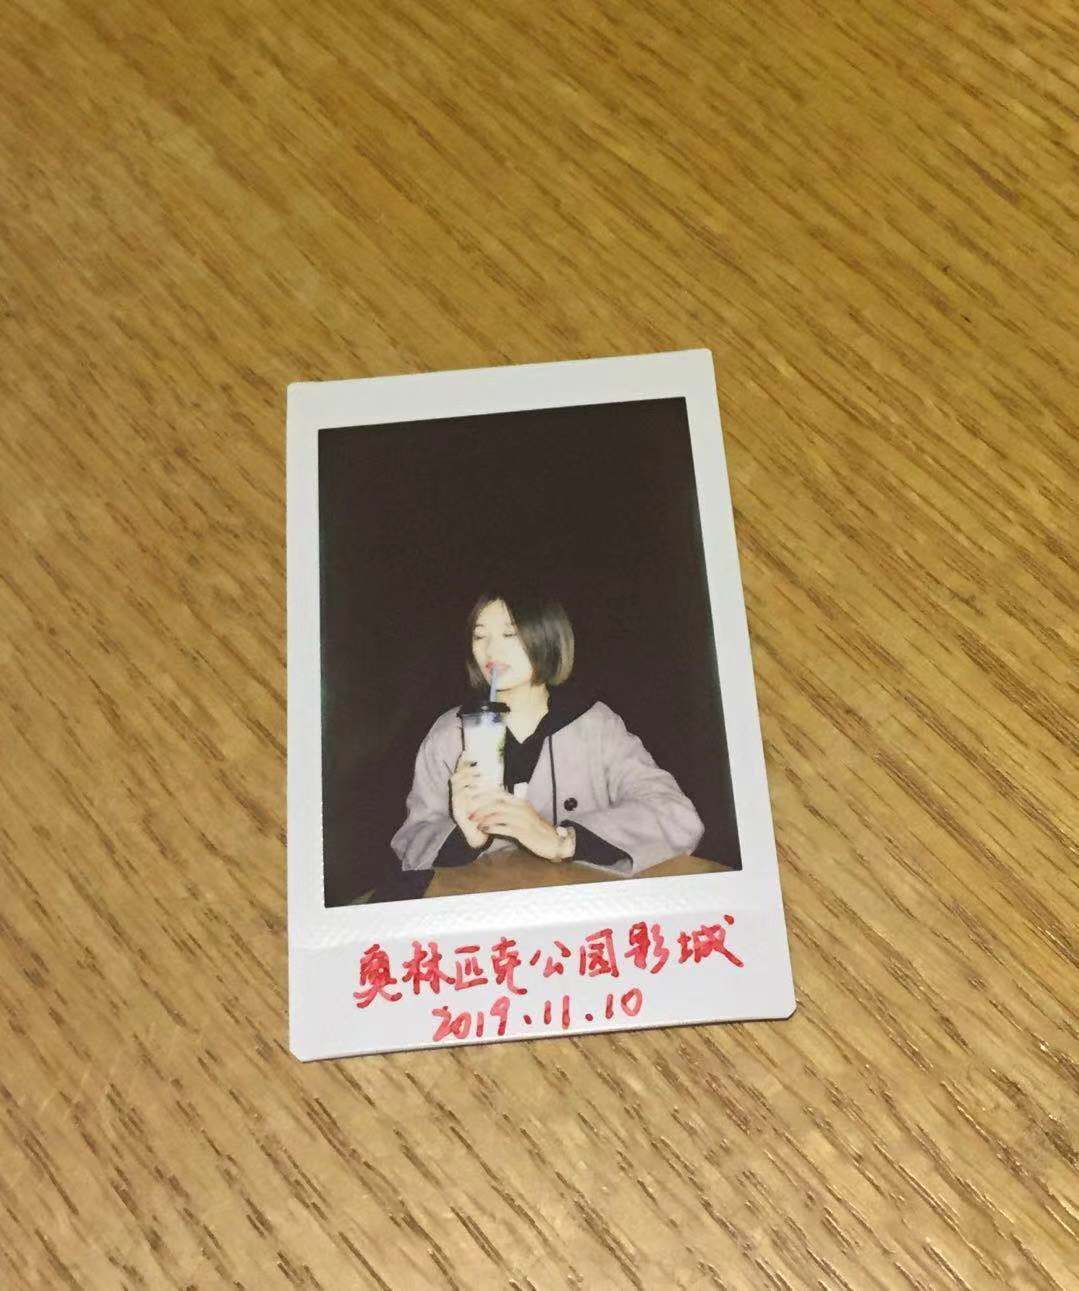 奥林匹克公园影城
2019.11.10